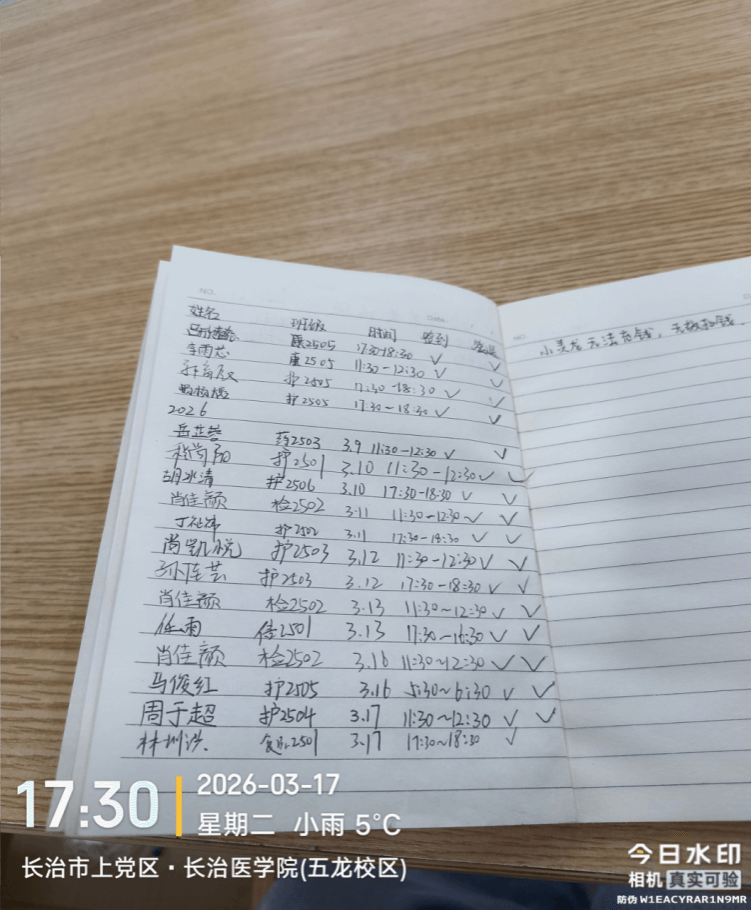 NO.
Date
姓名 班级 时间 签到 签退
康2505 17:30-18:30 ✓ ✓
李雨芯 康2505 11:30-12:30 ✓ ✓
护2505 17:30-18:30 ✓ ✓
护2505 17:30-18:30 ✓ ✓
2026
岳芷莹 药2503 3.9 11:30-12:30 ✓ ✓
护2501 3.10 11:30-12:30 ✓ ✓
胡冰清 护2506 3.10 17:30-18:30 ✓ ✓
肖佳颜 检2502 3.11 11:30-12:30 ✓ ✓
护2502 3.11 17:30-18:30 ✓ ✓
尚凯悦 护2503 3.12 11:30-12:30 ✓ ✓
护2503 3.12 17:30-18:30 ✓ ✓
肖佳颜 检2502 3.13 11:30~12:30 ✓ ✓
任雨 2501 3.13 17:30-18:30 ✓ ✓
肖佳颜 检2502 3.16 11:30~12:30 ✓ ✓
马俊红 护2505 3.16 5:30~6:30 ✓ ✓
周于超 护2504 3.17 11:30~12:30 ✓ ✓
2501 3.17 17:30~18:30 ✓
NO.
小灵龙无法充钱,无教扣钱
17:30
2026-03-17
星期二 小雨 5°C
长治市上党区·长治医学院(五龙校区)
今日水印
相机 真实可验
防伪 W1EACYRAR1N9MR